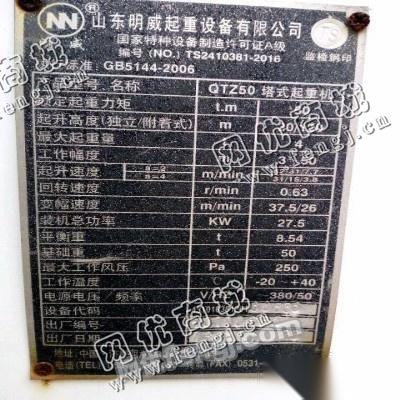 NN 山东明威起重设备有限公司 TS
国家特种设备制造许可证A级
编号(NO.)TS2410381-2016 监检钢印
标准: GB5144-2006
型号 名称 QTZ50 塔式起重机
额定起重力矩 t.m
起升高度(独立/附着式) m
最大起重量 t 4
工作幅度 m
起升速度 a=2 a=4 m/min
回转速度 r/min 0.63
变幅速度 m/min 37.5/26
装机总功率 KW 27.5
平衡重 t 8.54
基础重 t 50
最大工作风压 Pa 250
工作温度 ℃ -20 +40
电源电压/频率 380/50
设备代码
出厂编号
出厂日期
地址: 中国
电话(TEL) (FAX) 0531-
网优商城
www.fengj.com